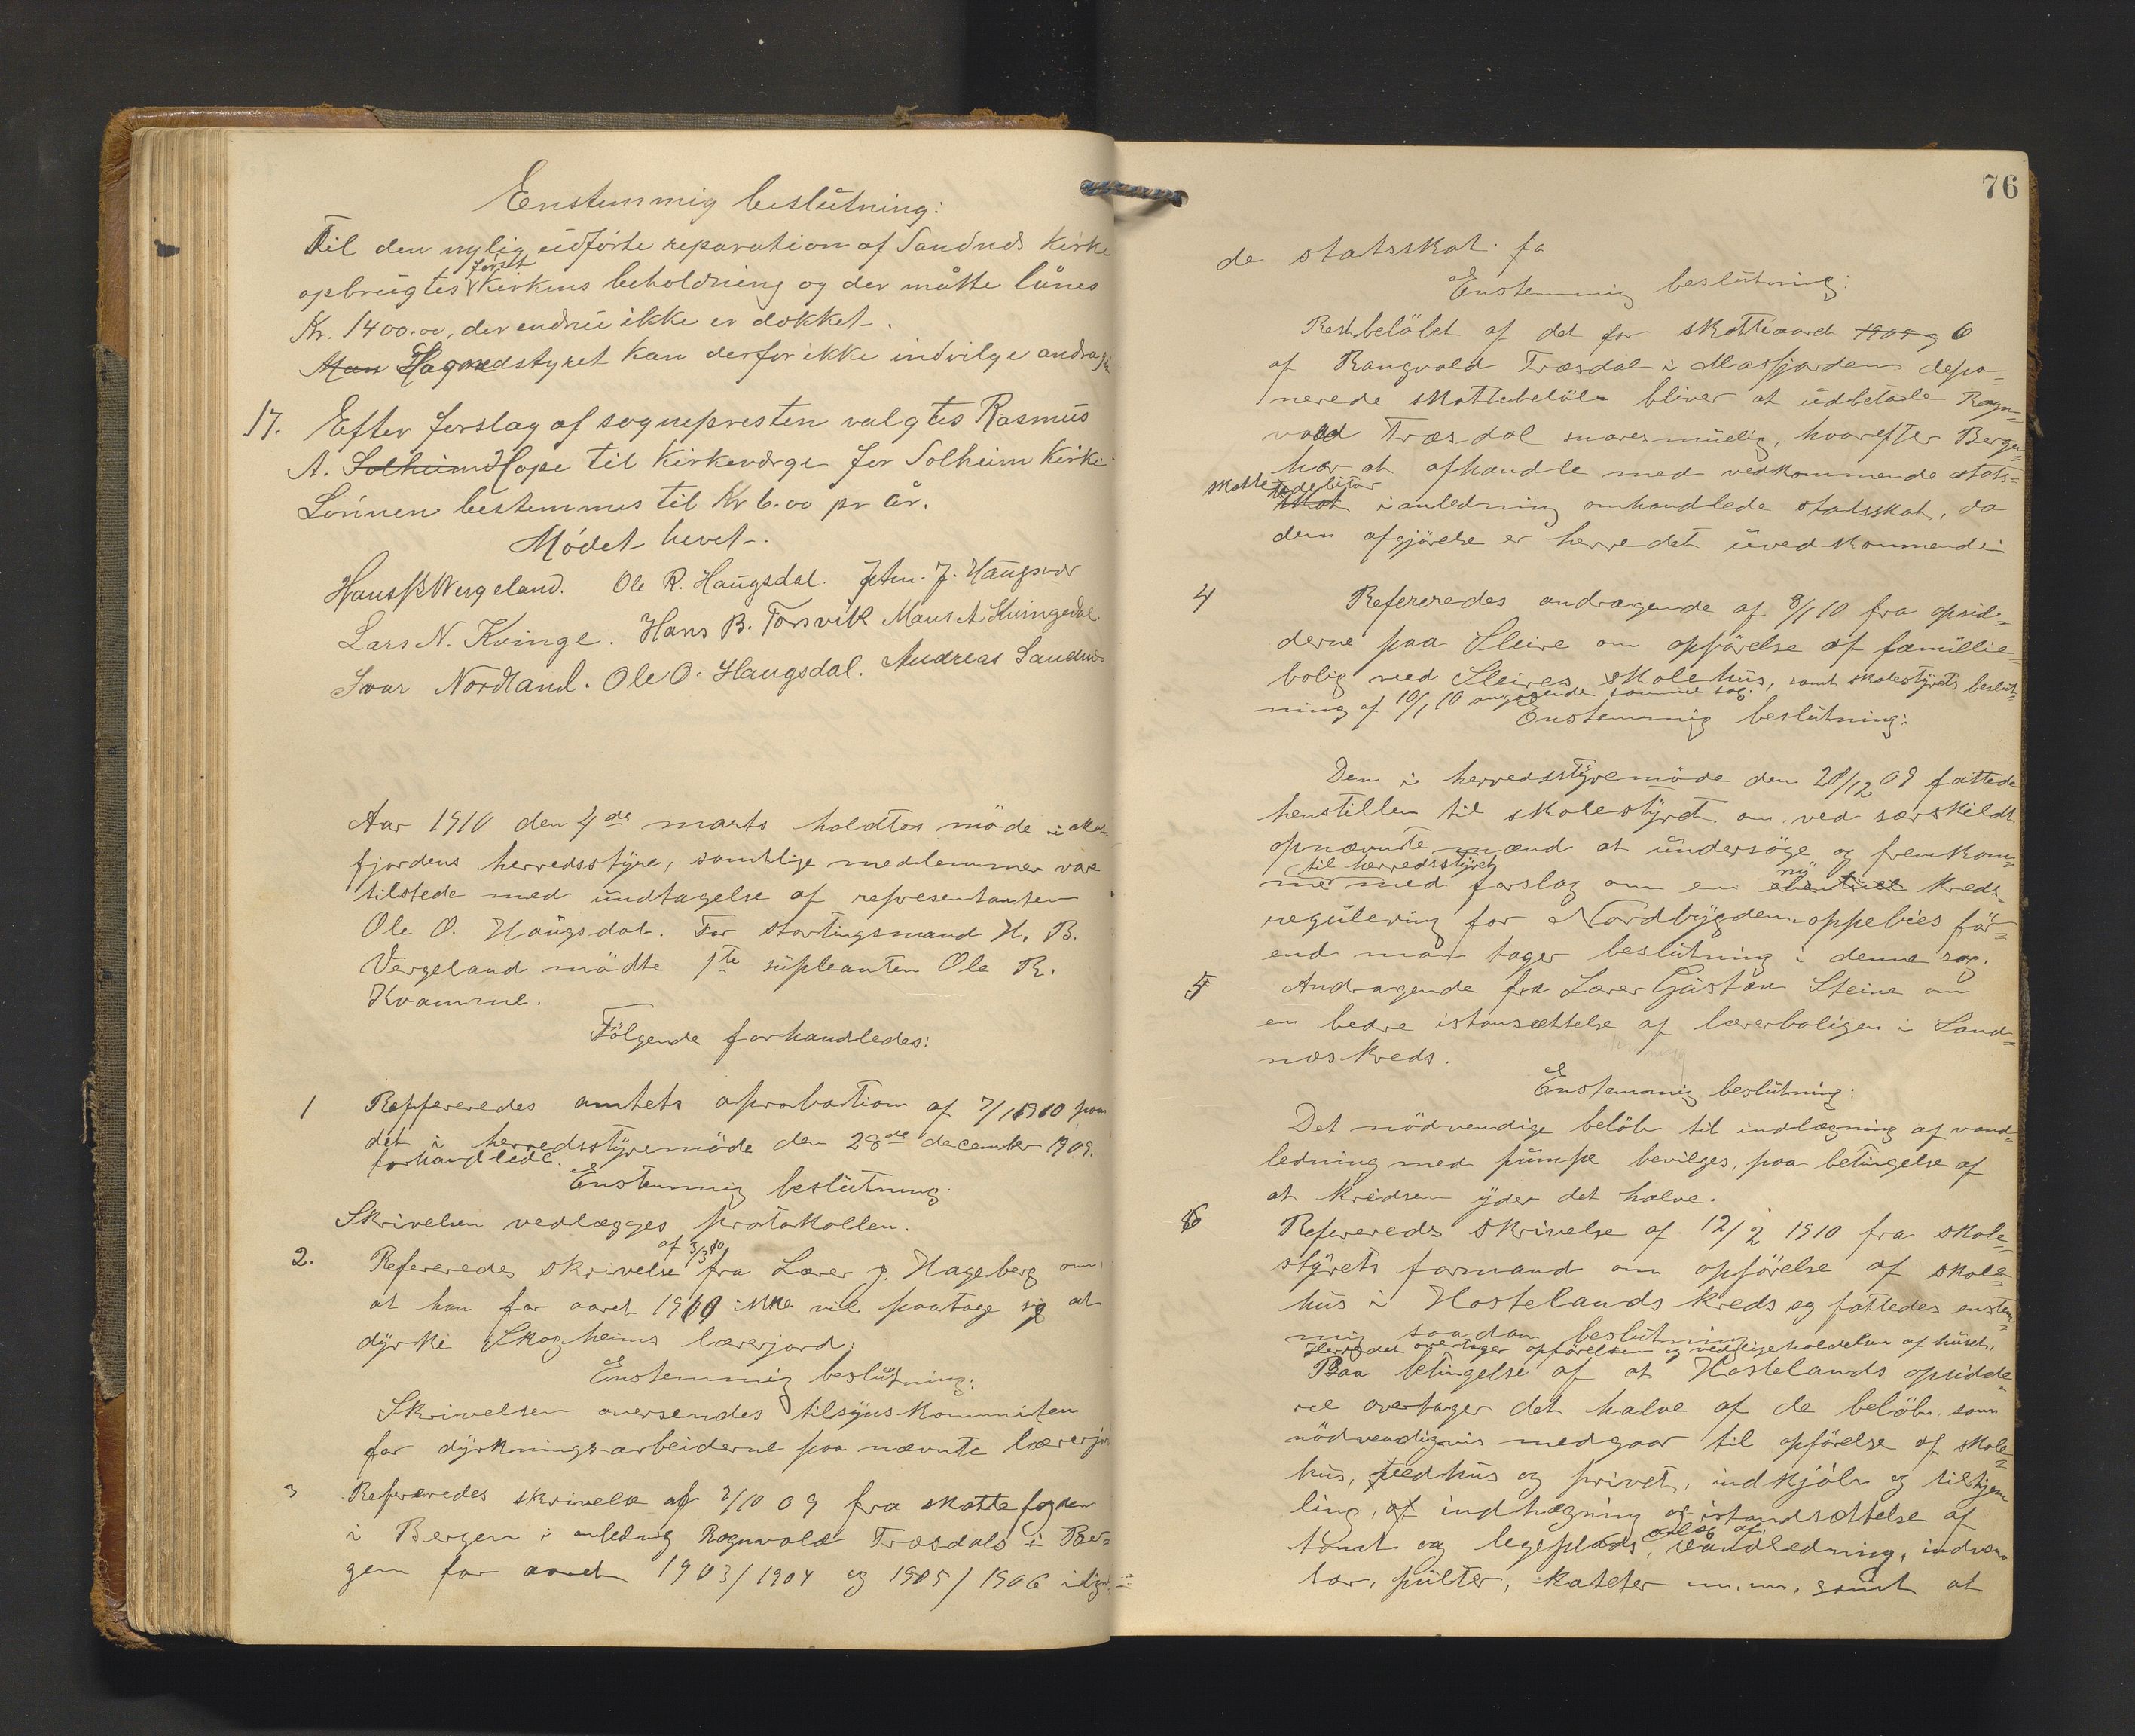 Enstemmig beslutning:
Til den nylig udförte reparation af Sandnes Kirke
opbrugtes först Kirkens beholdning og der måtte lånes
Kr. 1400.00, der endnu ikke er dækket.
Man Hagredstyret kan derfor ikke indvilge andrag
17. Efter forslag af sognepresten valgtes Rasmus
A. Solheim Hope til Kirkeværge for Solheim Kirke
Lönnen bestemmes til Kr 6.00 pr år.
Mödet hevet.
Hans B Wergeland. Ole R. Haugsdal. J. Haugsvær
Lars N. Kvinge. Hans B. Torsvik Mons A Kvingedal
Ivar Nordland. Ole O. Haugsdal. Andreas Sandnes
Aar 1910 den 4de marts holdtes möde i Mas
fjordens herredsstyre, samtlige medlemmer var
tilstede med undtagelse af representanten
Ole O. Haugsdal. For stortingsmand H. B.
Vergeland mödte 1te supleanten Ole R.
Kvamme.
Fölgende forhandledes:
1 Reffereredes amtets aprobation af 7/1 1910 paa
det i herredsstyremöde den 28de december 1909.
forhandlede.
Enstemmig beslutning
Skrivelsen vedlægges protokollen.
2. Refereredes skrivelse af 3/3 10 fra Lærer J. Hageberg om
at han for aaret 1910 ikke vil paatage sig at
dyrke Skogheims lærerjord.
Enstemmig beslutning:
Skrivelsen oversendes tilsynskommiten
for dyrkningsarbeiderne paa nævnte lærerjor
3 Refereredes skrivelse af 2/10 09 fra skattefogden
i Bergen i anledning Ragnvald Træsdals i Ber=
gen for aaret 1903/1904 og 1905/1906 ilign=
76
de statsskat.
Enstemmig beslutning:
Restbelöbet af det for skatteaaret 1905 6
af Rangvald Træsdal i Masfjorden depo=
nerede skattebelöb bliver at udbetale Ragn=
vald Træsdal snarest muelig, hvorefter Bergen
har at afhandle med vedkommende stats=
skattedebitor i anledning omhandlede statsskat, da
dens afgjörelse er herredet uvedkommende
4 Refereredes andragende af 8/1 10 fra opsid=
derne paa Sleire om opförelse af famillie=
bolig ved Sleires skolehus, samt skolestyrets beslut=
ning af 10/1 10 angaaende samme sag.
Enstemmig beslutning:
Den i herredsstyremöde den 28/12 09 fattede
henstillen til skolestyret om ved særskildt
opnævnte mænd at undersöge og fremkom=
me til herredsstyret med forslag om en ny kreds
regulering for Nordbygden oppebies för=
end man tager beslutning i denne sag.
5 Andragende fra Lærer Gustav Steine om
en bedre istansættelse af lærerboligen i Sand=
næs kreds.
Enstemmig beslutning:
Det nödvendige belöb til indlægning af vand=
ledning med pumpe bevilges, paa betingelse af
at kredsen yder det halve.
6 Refereredes skrivelse af 12/2 1910 fra skole=
styrets formand om opförelse af skole=
hus i Hostelands kreds og fattedes enstem=
mig saadan beslutning
Herredet overtager opförelsen og vedligeholdelsen af huset.
Paa betingelse af at Hostelands opsidde=
re overtager det halve af de belöb, som
nödvendigvis medgaar til opförelse af skole=
hus, vedhus og privet, indkjöb og tilkjem
ling, af indhægning og istandsættelse af
tomt og legeplads, anlæg af vandledning, indven
tar, pulter, kateter m.m, samt at